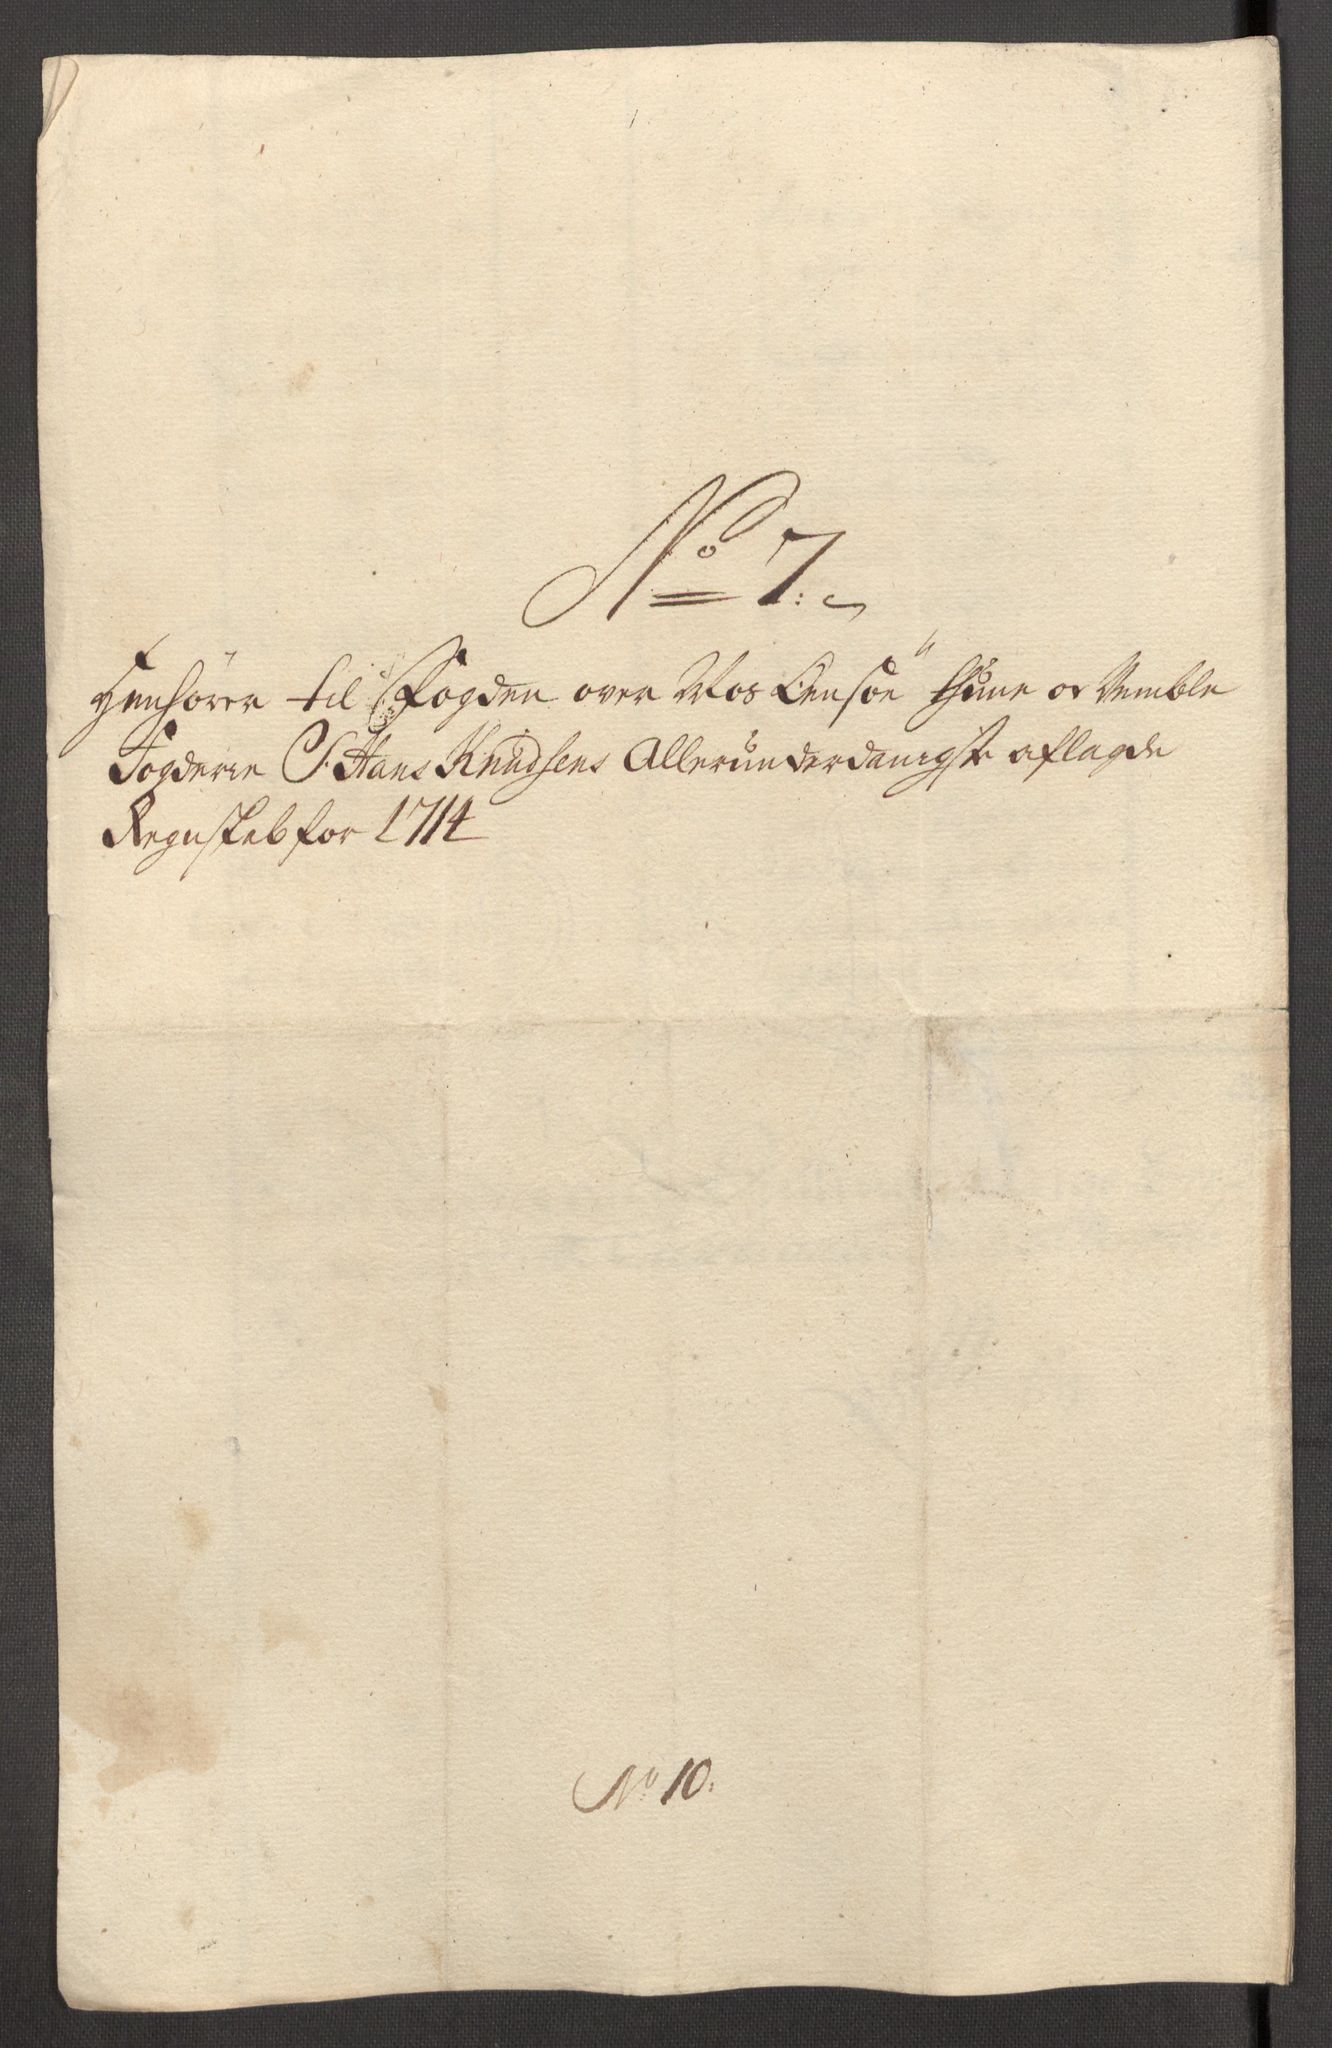 No 7.
Henhører til Fogden over Mos Onsøe Thune og Vemble
Fogderie S. Hans Knudsens Allerunderdanigste aflagde
Regnskab for 1714
No 10.